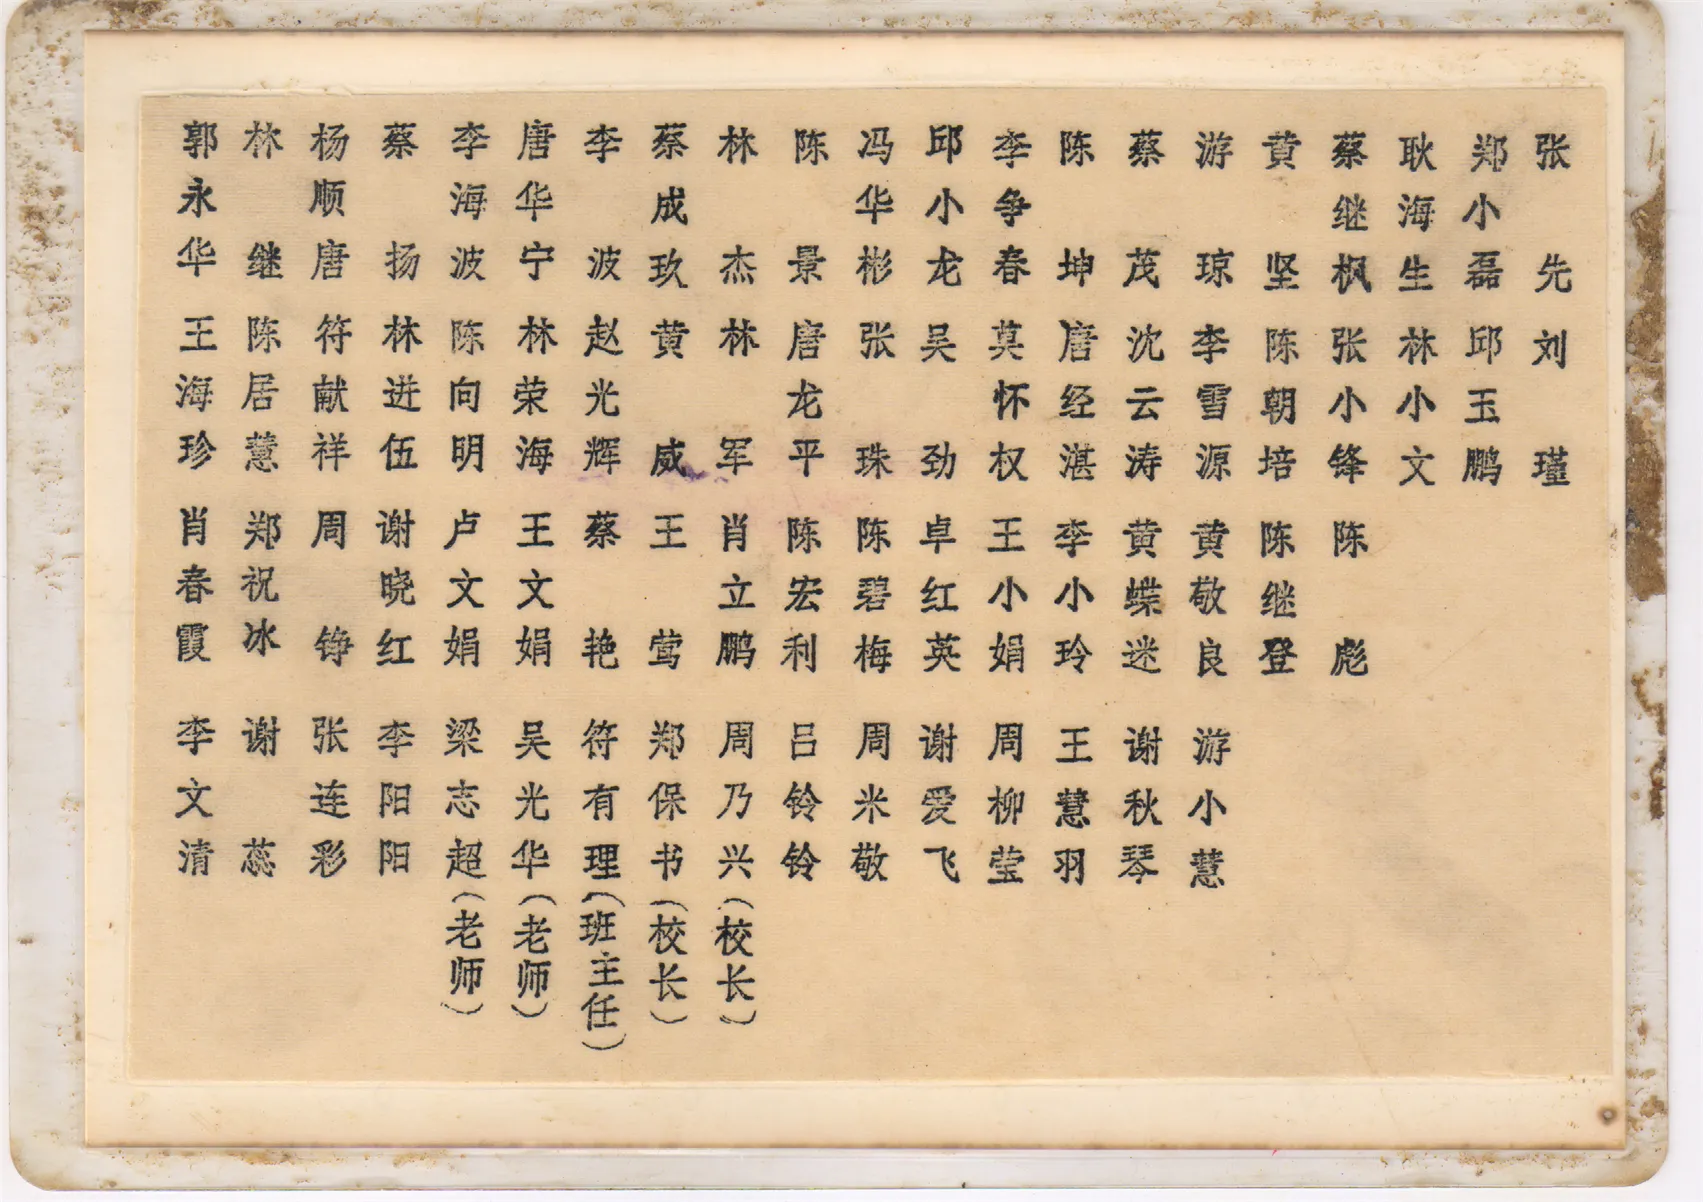 郭永华 林继 杨顺唐 蔡扬 李海波 唐华宁 李波 蔡成玖 林杰 陈景 冯华彬 邱小龙 李争春 陈坤 蔡茂 游琼 黄坚 蔡继枫 耿海生 郑小磊 张先
王海珍 陈居慧 符献祥 林进伍 陈向明 林荣海 赵光辉 黄威 林军 唐龙平 张珠 吴劲 莫怀权 唐经湛 沈云涛 李雪源 陈朝培 张小锋 林小文 邱玉鹏 刘瑾
肖春霞 郑祝冰 周铮 谢晓红 卢文娟 王文娟 蔡艳 王莺 肖立鹏 陈宏利 陈碧梅 卓红英 王小娟 李小玲 黄蝶迷 黄敬良 陈继登 陈彪
李文清 谢蕊 张连彩 李阳阳 梁志超(老师) 吴光华(老师) 符有理(班主任) 郑保书(校长) 周乃兴(校长) 吕铃铃 周米敬 谢爱飞 周柳莹 王慧羽 谢秋琴 游小慧